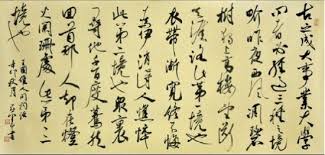 古之成大事業大學
問者必經過三種之境
界昨夜西風凋碧
樹獨上高樓望斷
衣帶漸寬終不悔
為伊消得人憔悴
此第二境也衆裏
尋他千百度驀然
回首那人卻在燈
火闌珊處此第三
境也
王國維人間詞話